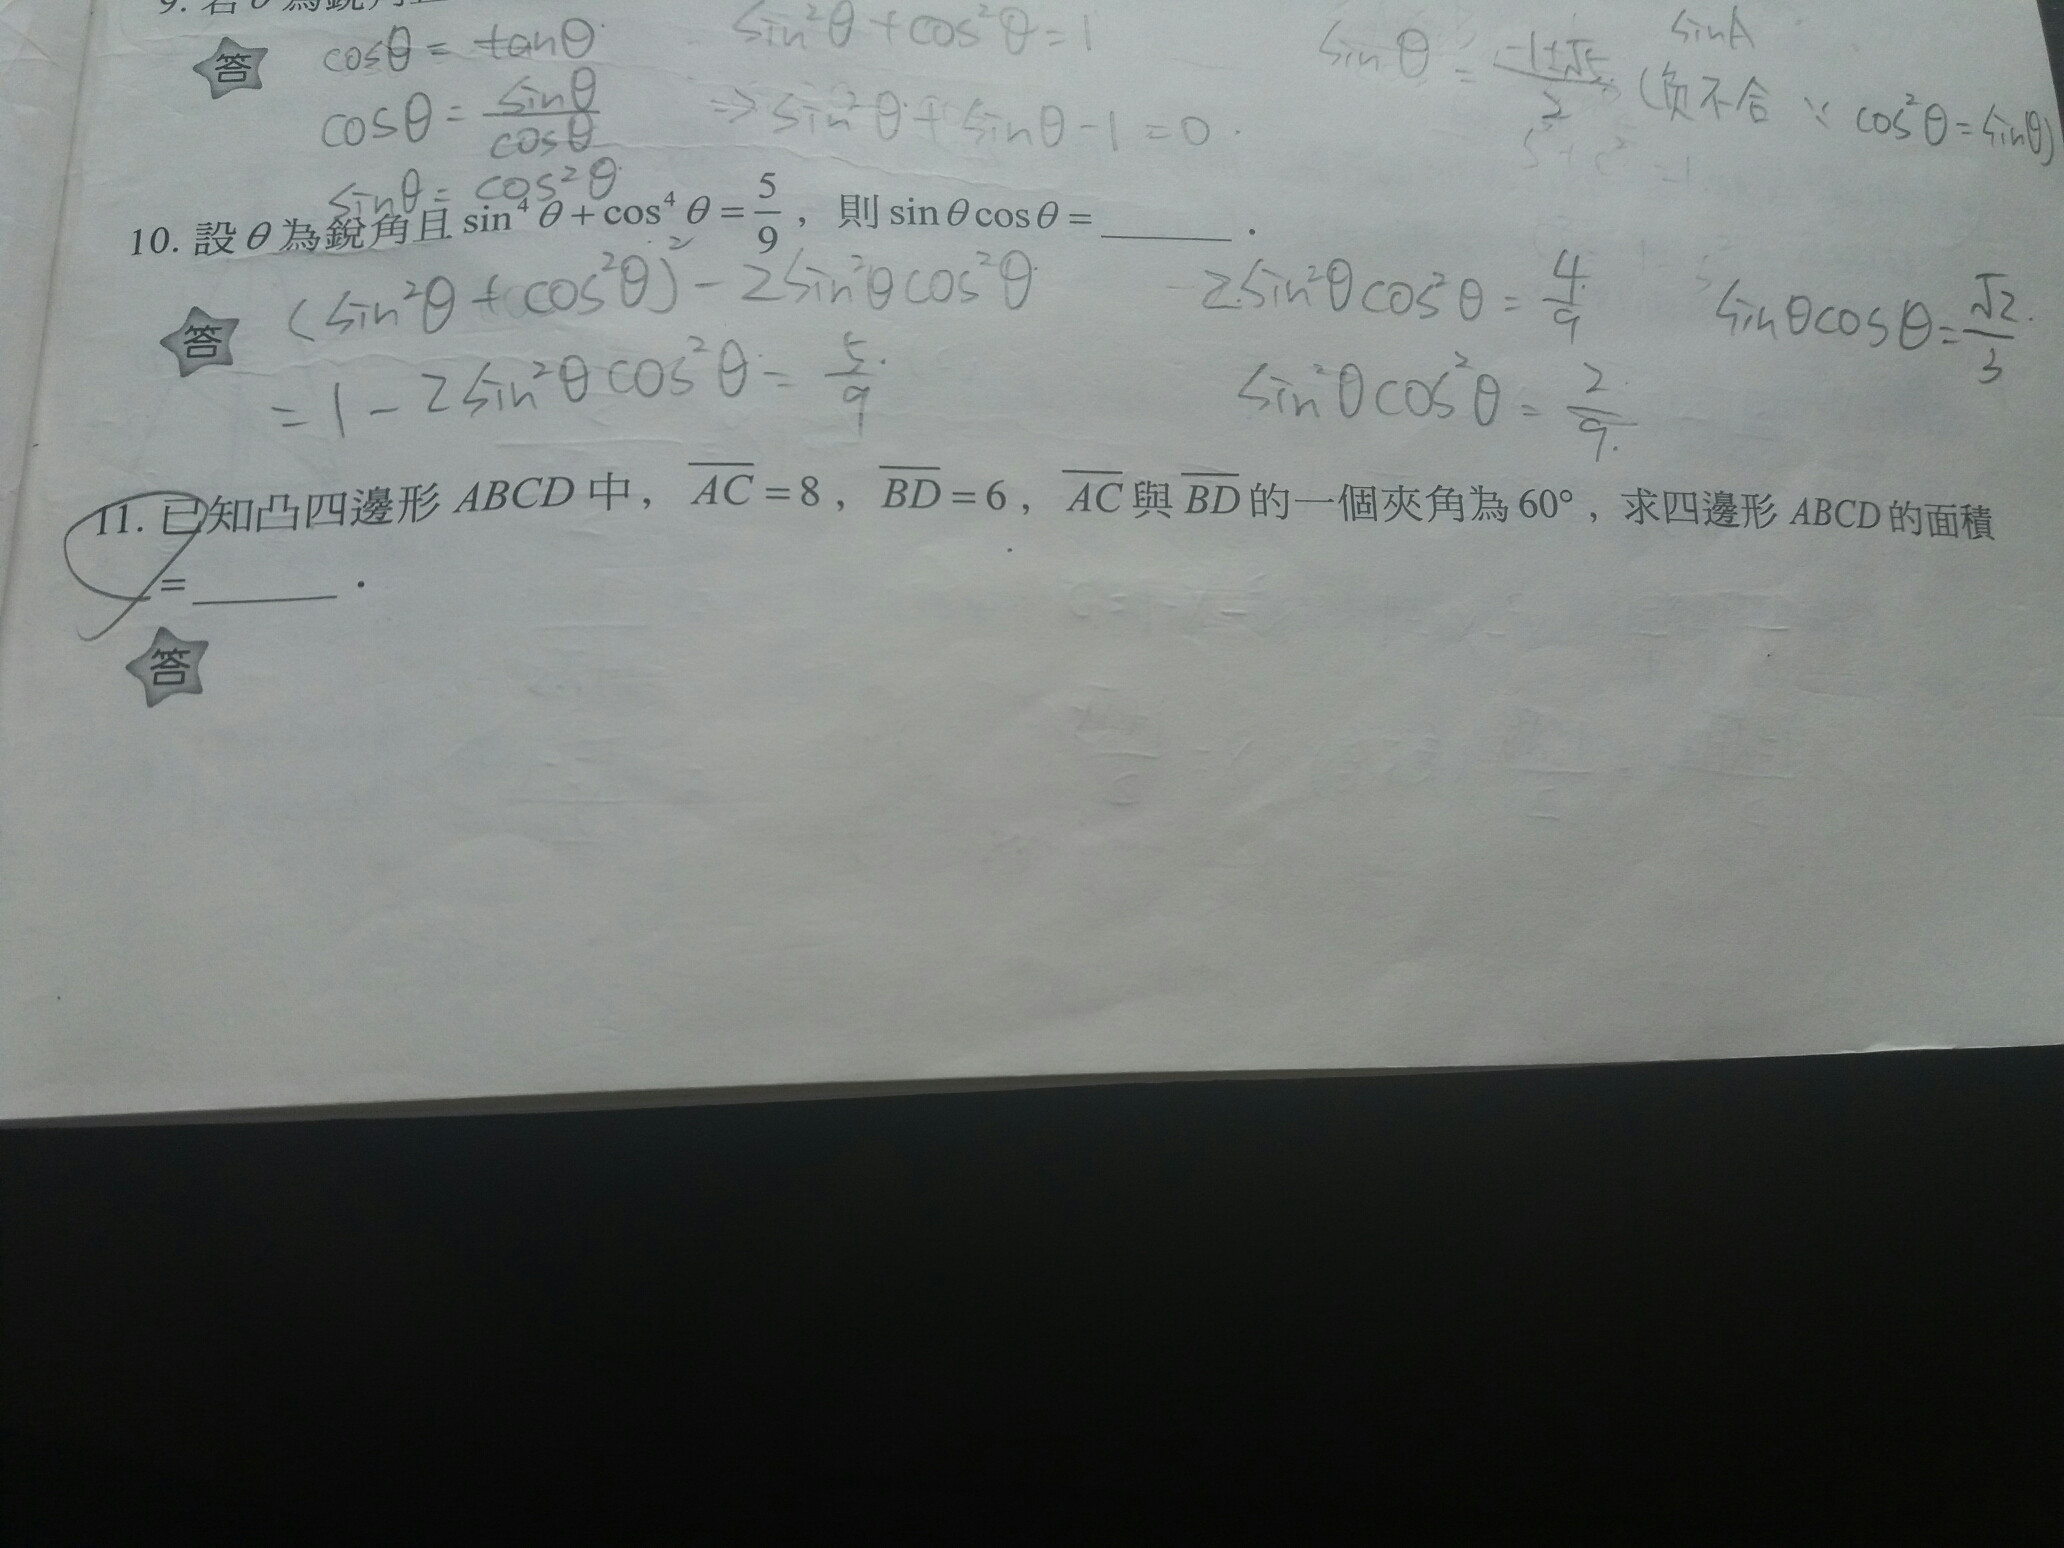 答 cosθ = tanθ sin²θ + cos²θ = 1 sinθ = (-1±√5)/2 (負不合 ∵ cos²θ = sinθ)
sinA
cosθ = sinθ/cosθ ⇒ sin²θ + sinθ - 1 = 0
sinθ = cos²θ
10. 設θ為銳角且 sin⁴θ + cos⁴θ = 5/9 , 則 sinθcosθ = ______ .
答 (sin²θ + cos²θ)² - 2sin²θcos²θ 2sin²θcos²θ = 4/9 sinθcosθ = √2/3
= 1 - 2sin²θcos²θ = 5/9 sin²θcos²θ = 2/9
11. 已知凸四邊形 ABCD 中, AC = 8 , BD = 6 , AC 與 BD 的一個夾角為 60° , 求四邊形 ABCD 的面積
= ______ .
答